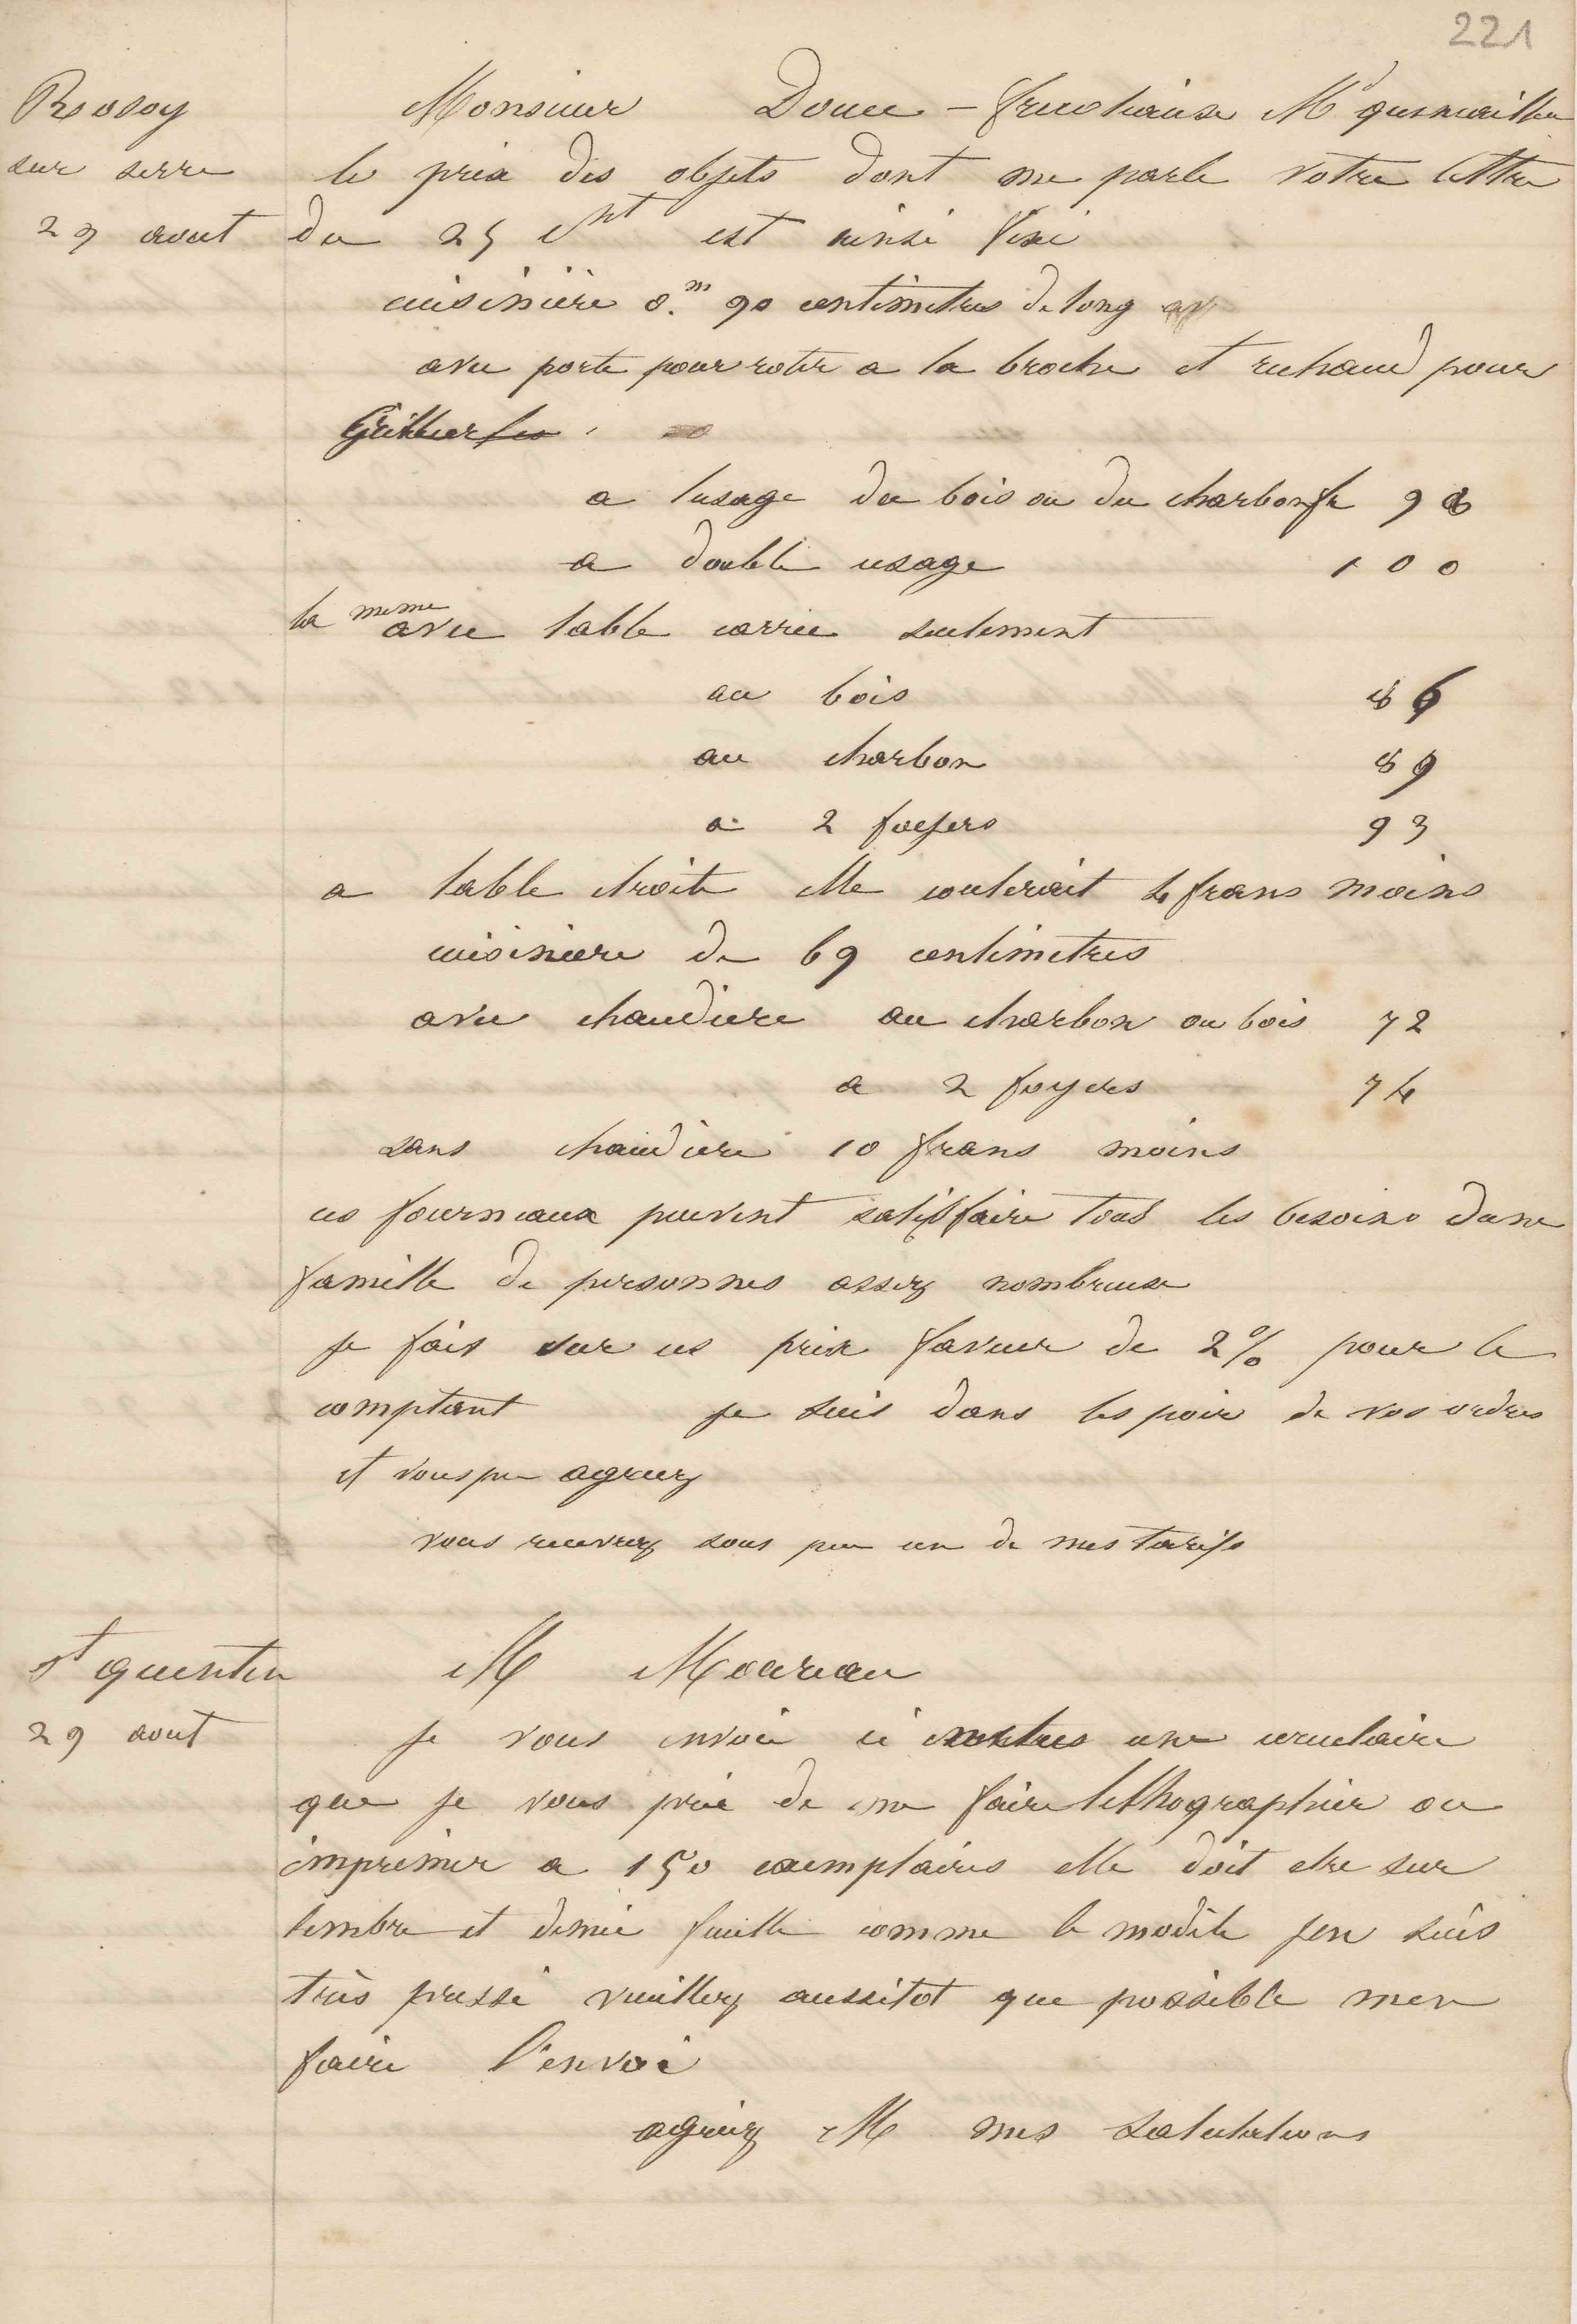 221
Rosoy
sur serre
29 aout
Monsieur Douce - M<sup>d</sup> quincailler
le prix des objets dont me parle votre lettre
du 25 est ainsi fixé
cuisinière 0.<sup>m</sup> 90 centimetres de long
avec porte pour rotir a la broche et rechaud pour
a lusage du bois ou du charbon fr 98
a double usage 100
la meme avec table carrée seulement
au bois 86
au charbon 89
a 2 foyers 93
a table droite elle couterait 4 francs moins
cuisiniere de 69 centimetres
avec chaudiere au charbon ou bois 72
a 2 foyers 74
sans chaudière 10 francs moins
ces fourneaux peuvent satisfaire tous les besoins dune
famille de personnes assez nombreuse
je fais sur ces prix faveur de 2% pour le
comptant je suis dans lespoir de vos ordres
et vous prie agreez
vous recevrez sous peu un de mes tarifs
S<sup>t</sup> quentin
29 aout
M Moureau
je vous envoie ci une circulaire
que je vous prie de me faire lithographier ou
imprimer a 150 exemplaires elle doit etre sur
timbre et demie feuille comme le modèle jen suis
très pressé veuillez aussitot que possible men
faire l'envoi
agréez M mes salutations